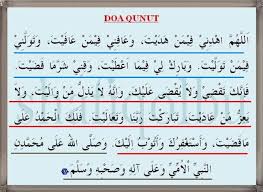 DOA QUNUT
اَللّٰهُمَّ اهْدِنِيْ فِيْمَنْ هَدَيْتَ، وَعَافِنِيْ فِيْمَنْ عَافَيْتَ، وَتَوَلَّنِيْ
فِيْمَنْ تَوَلَّيْتَ، وَبَارِكْ لِيْ فِيْمَا أَعْطَيْتَ، وَقِنِيْ شَرَّمَا قَضَيْتَ،
فَإِنَّكَ تَقْضِيْ وَلاَ يُقْضَى عَلَيْكَ، وَاِنَّهُ لاَ يَذِلُّ مَنْ وَالَيْتَ، وَلاَ
يَعِزُّ مَنْ عَادَيْتَ، تَبَارَكْتَ رَبَّنَا وَتَعَالَيْتَ، فَلَكَ الْحَمْدُ عَلَى
مَاقَضَيْتَ، وَأَسْتَغْفِرُكَ وَأَتُوْبُ اِلَيْكَ، وَصَلَّى اللهُ عَلَى مُحَمَّدٍ
النَّبِيِّ الْأُمِّيِّ وَعَلَى آلِهِ وَصَحْبِهِ وَسَلَّمَ.